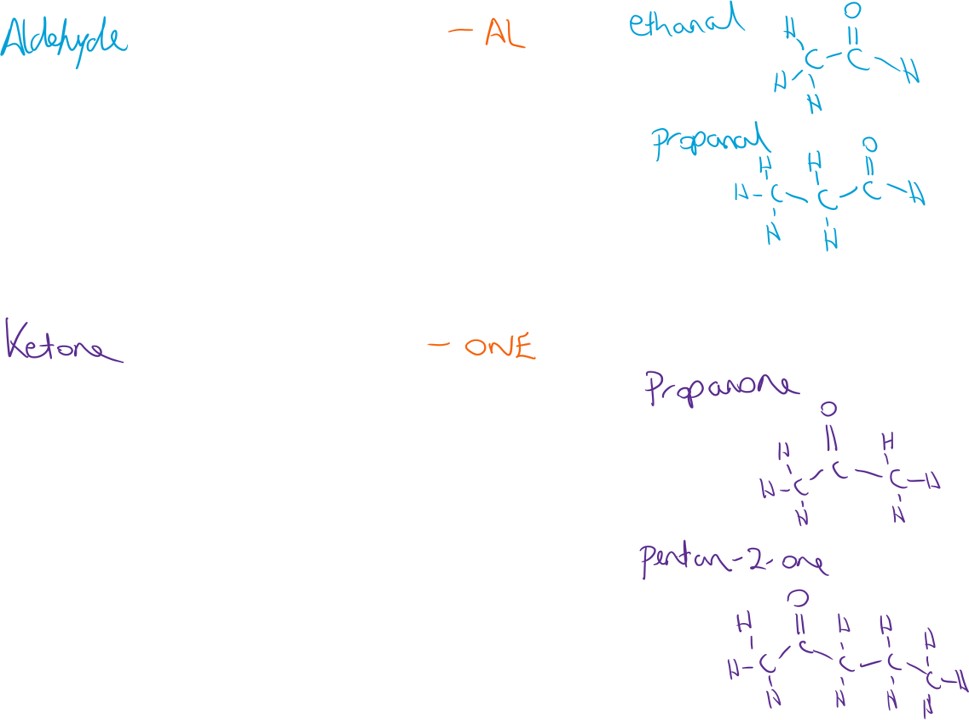 Aldehyde
- AL
ethanal
H O
C - C
H H
H
propanal
H H O
H - C - C - C - H
H H
Ketone
- ONE
Propanone
O
H C H
H - C C - H
H H
pentan-2-one
O
H C H H H
H - C C - C - C - H
H H H H